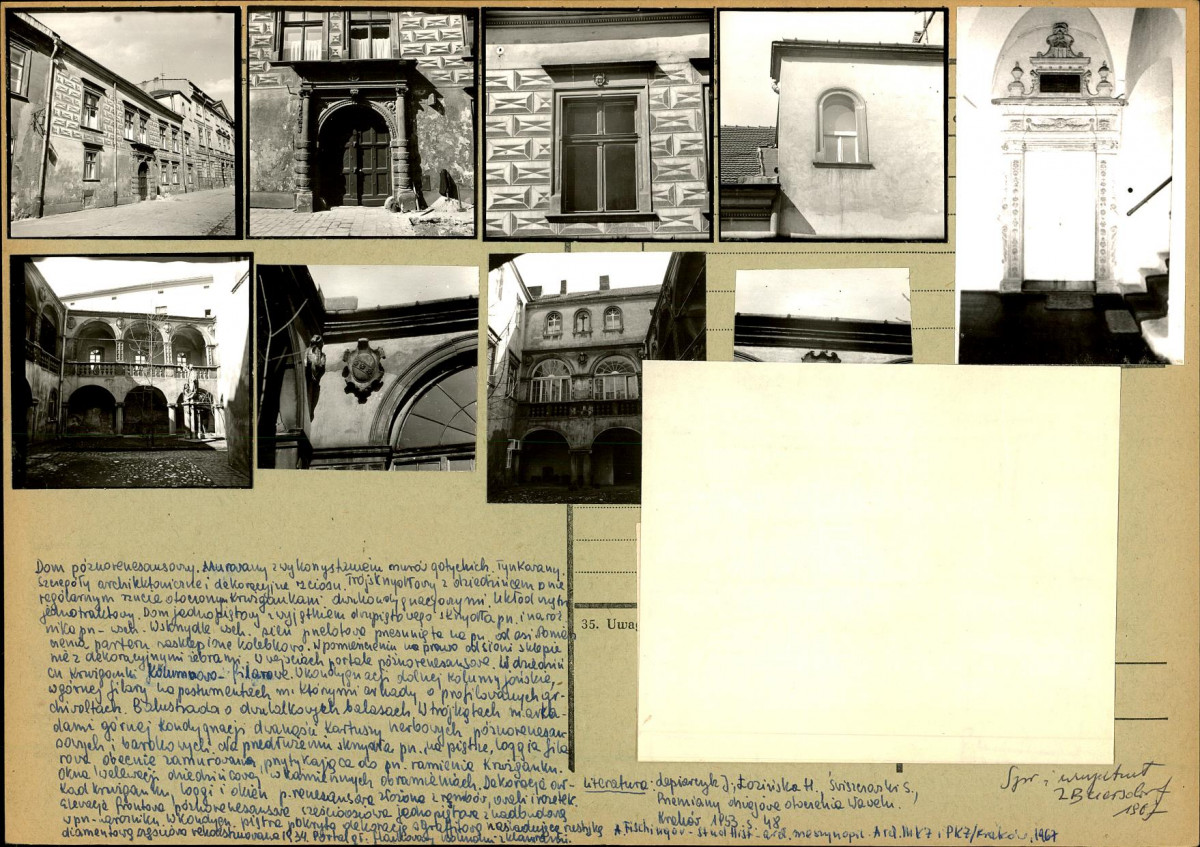 Dom późnorenesansowy. Murowany z wykorzystaniem murów gotyckich. Tynkowany,
szczegóły architektoniczne i dekoracyjne z ciosu. Trójskrzydłowy z dziedzińcem o nie
regularnym rzucie otoczonym krużgankami dwukondygnacjowymi. Układ wnętrz
jednotraktowy. Dom jednopiętrowy z wyjątkiem dwupiętrowego skrzydła pn. i naroż
nika pn-wsch. W skrzydle wsch. sień przelotowa przesunięta na pn. od osi. Pomiesz
czenia parteru zasklepione kolebkowo. W pomieszczeniu na prawo od sieni sklepie
nie z dekoracyjnymi żebrami. W wejściach portale późnorenesansowe. W dziedziń
cu krużganki kolumnowo-filarowe. W kondygnacji dolnej kolumny jońskie,
w górnej filary na postumentach m. którymi arkady o profilowanych ar-
chiwoltach. Balustrada o dwulalkowych balasach. W trójkątach m. arka-
dami górnej kondygnacji dwanaście kartuszy herbowych późnorenesan-
sowych i barokowych. Na przedłużeniu skrzydła pn. na piętrze, loggia fila
rowa obecnie zamurowana, przytykająca do pn. ramienia krużganku.
Okna w elewacji dziedzińcowej w kamiennych obramieniach. Dekoracja ar-
kad krużganku, loggi i okien p.renesansowa złożona z rombów, owali i rozetek.
Elewacja frontowa późnorenesansowa sześcioosiowa jednopiętrowa z nadbudową
w pn. narożniku. W kondygn. piętra pokryta dekoracją sgraffitową naśladującą rustykę
diamentową częściowo rekonstruowana 1934. Portal gł. flankowany kolumnami z klawiszami.
35. Uwag
Literatura: Lepiarczyk J., Łozińska H., Świszczowski S.,
Przemiany dziejowe otoczenia Wawelu.
Kraków 1953. s. 48
A. Fischinger - Stud. Hist-arch. maszynopis. Arch. MKZ i PKZ/Kraków, 1967
Spr. i uzupełnił
Z Beiersdorf